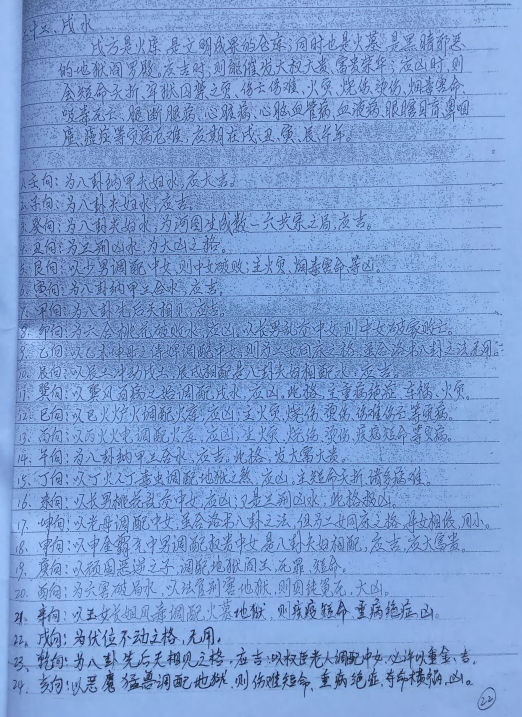 十二、戌水
戌方是火库,是文明成果的仓库;同时也是火墓,是黑暗邪恶
的地狱阎罗殿。应吉时,则能催发大权大贵,富贵荣华;应凶时,则
会短命夭折,牢狱囚禁之灾,伤亡伤难,火灾,烧伤烫伤,烟毒害命,
吸毒死亡,腿断腿病,心脏病,心脑血管病,血液病,眼瞎目盲,鼻咽
癌,癌症等灾病厄难。应期在戌、丑、寅、辰、午年。
1、壬向:为八卦纳甲夫妇水,应大吉。
2、子向:为八卦夫妇水,应吉。
3、癸向:为八卦夫妇水,为河图生成数一六共宗之局,应吉。
4、丑向:为三刑凶水,为大凶之格。
5、艮向:以少男调配中女,则中女破败;主火灾,烟毒害命等凶。
6、寅向:为八卦纳甲三合水,应吉。
7、甲向:为八卦先后天相见,应吉。
8、卯向:为六合桃花破败水,应凶,以长男乱示中女,则中女破家败亡。
9、乙向:以乙木 调配中女,则为二女同床之格,虽合洛书八卦之法无用。
10、辰向:以辰 戌,辰戌相配是八卦夫妇相配水,应吉。
11、巽向:以巽风 病之 调配戌水,应凶,此格,主重病绝症,车祸,火灾。
12、巳向:以巳火炉火调配火库,应凶;主火灾,烧伤,烫伤,伤难伤亡等灾病。
13、丙向:以丙火火电调配火库,应凶,主火灾,烧伤,烫伤,疾病短命等灾病。
14、午向:为八卦纳甲三合水,应吉,此格,发大富大贵。
15、丁向:以丁火 毒虫调配地狱之煞,应凶,主短命夭折,诸多孤难。
16、未向:以长男桃花乱示中女,应凶,又是三刑凶水,此格极凶。
17、坤向:以老母调配中女,虽合洛书八卦之法,但为二女同居之格,母女相依,用小。
18、申向:以申金霸 中男调配 贵中女是八卦夫妇相配,应吉,应大富贵。
19、庚向:以顽固恶逆之子,调配阎王,无 ,短命。
20、酉向:为六害破局水,以法官刑害地狱,则囚徒冤死,大凶。
21、辛向:以玉女长姐风毒调配火墓地狱,则疾疫短命,重病绝症,凶。
22、戌向:为伏位不动之格,无用。
23、乾向:为八卦先后天相见之格,应吉;以权臣老人调配中女,必许以重金,吉。
24、亥向:以恶魔猛兽调配地狱,则伤难短命,重病绝症,夺命横祸,凶。
22